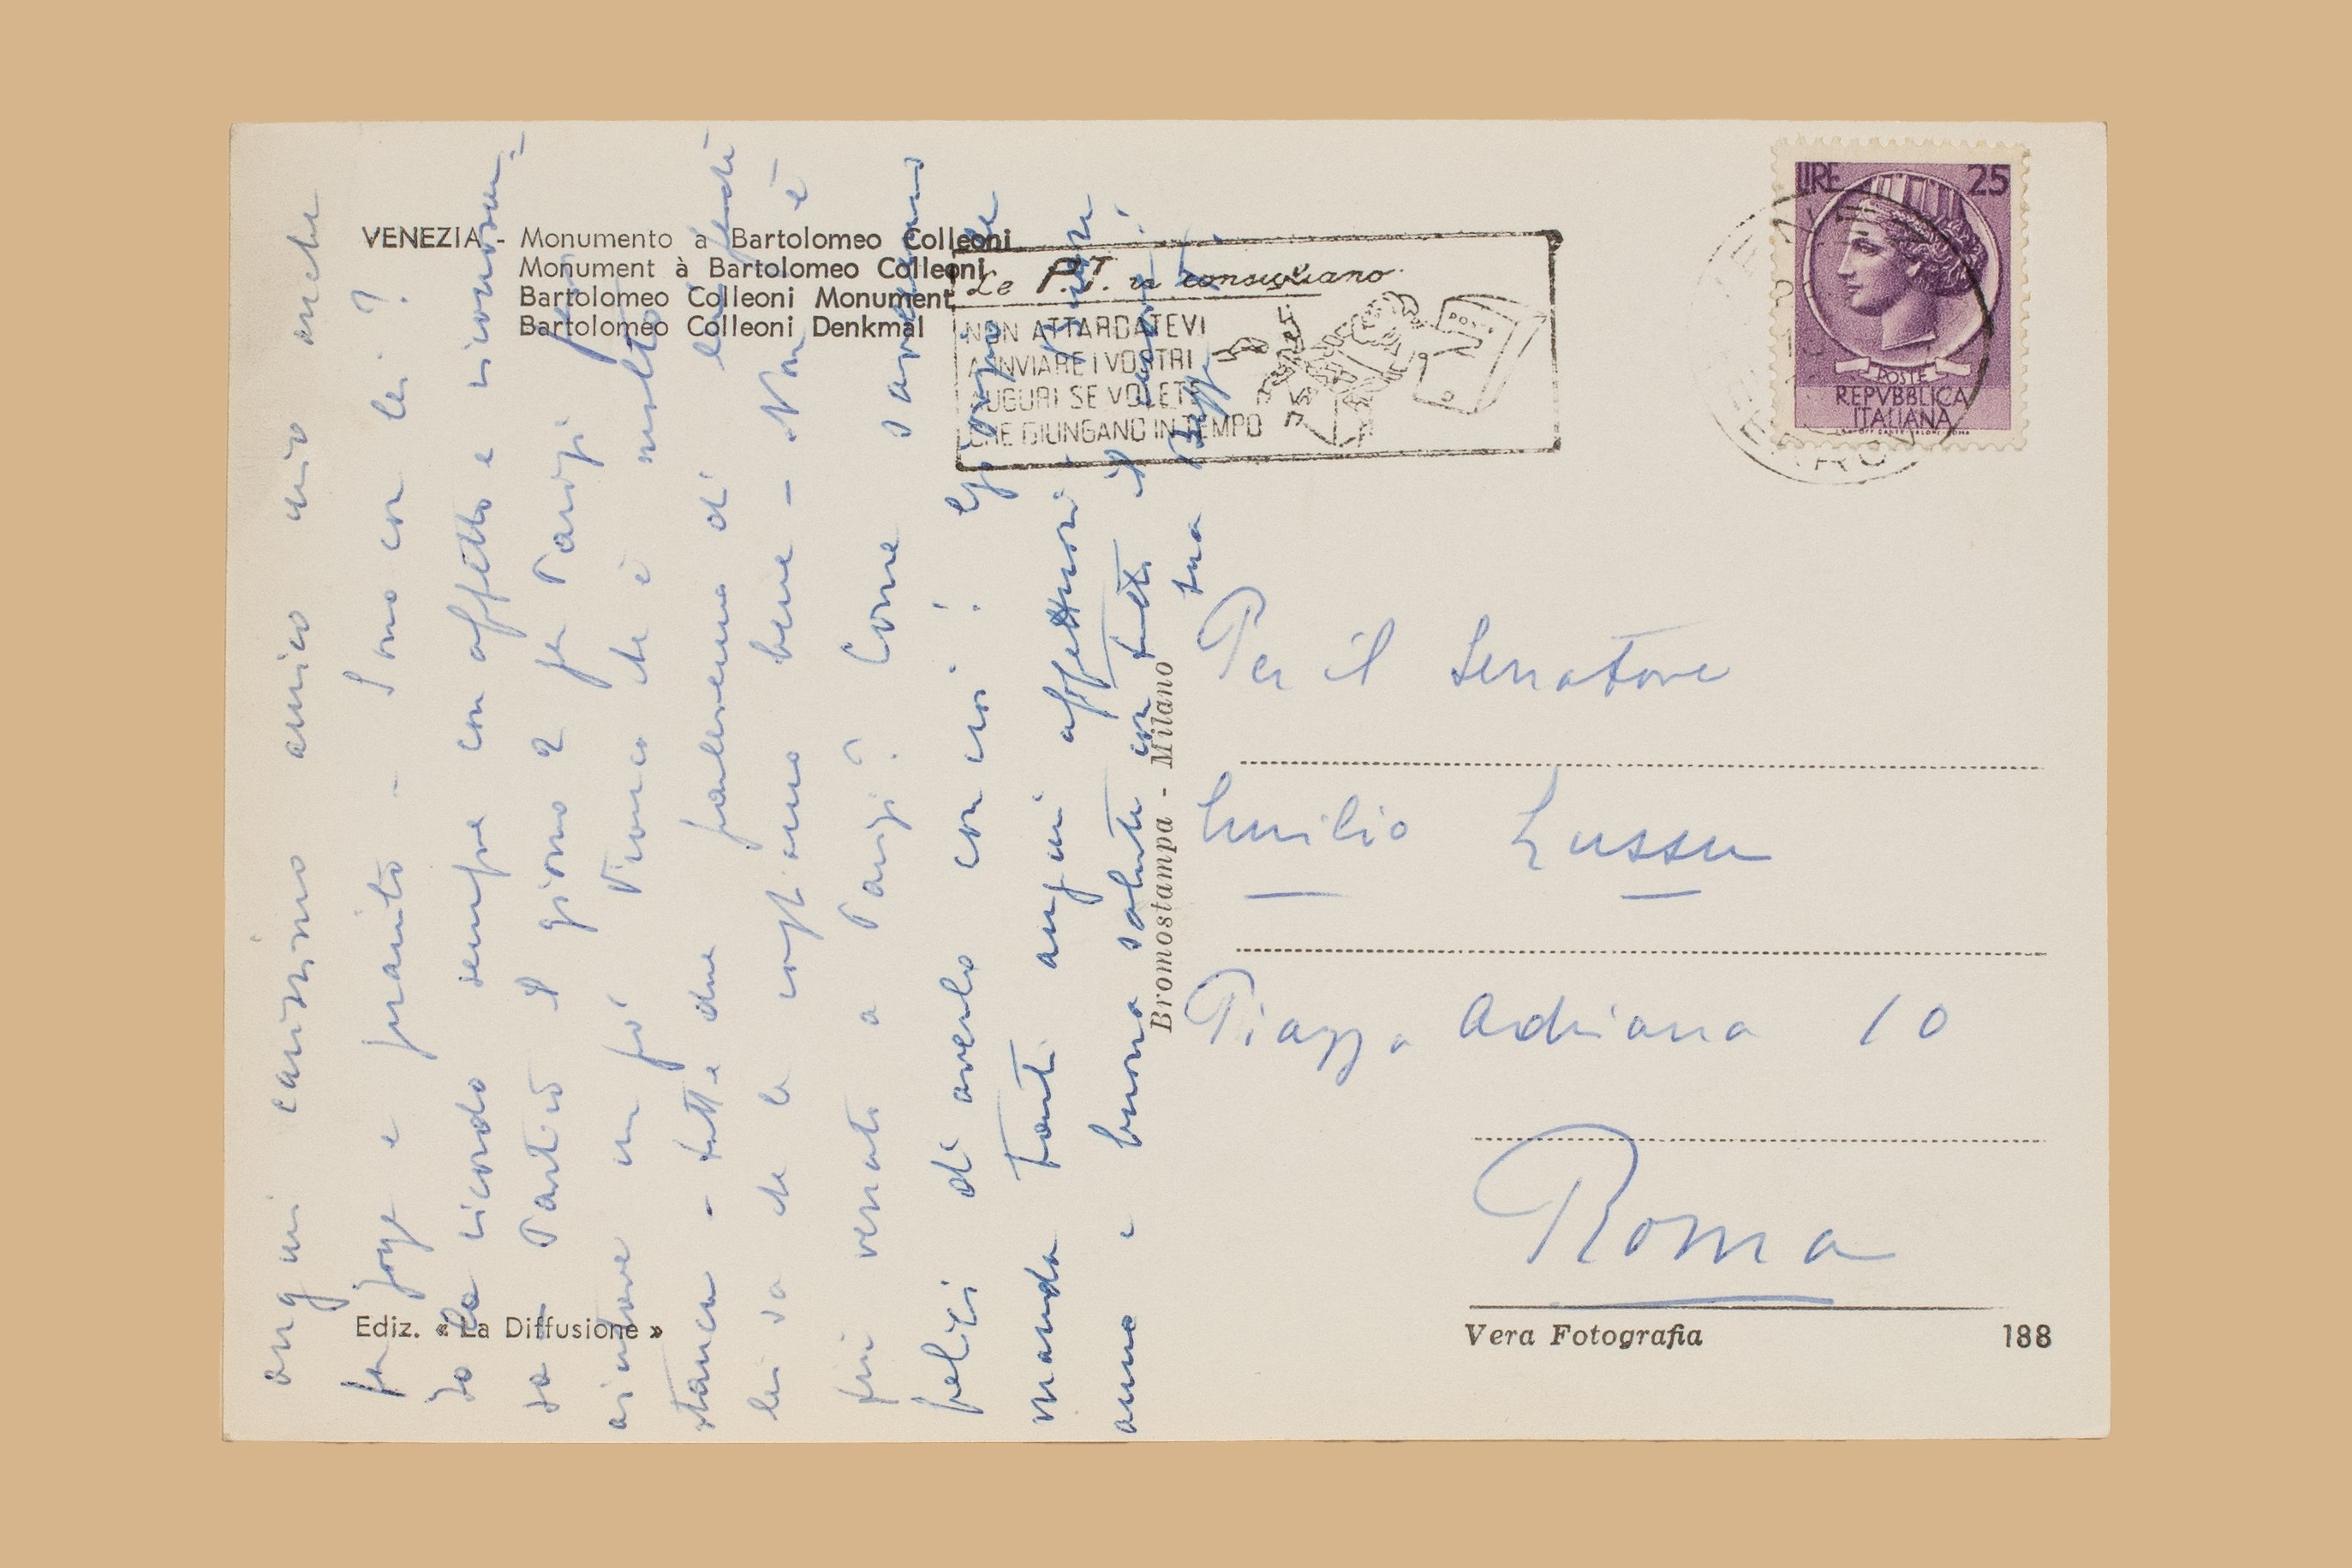 VENEZIA - Monumento a Bartolomeo Colleoni
Monument à Bartolomeo Colleoni
Bartolomeo Colleoni Monument
Bartolomeo Colleoni Denkmal
Le P.T. vi consigliano
NON ATTARDATEVI
A INVIARE I VOSTRI
AUGURI SE VOLETE
CHE GIUNGANO IN TEMPO
POSTA
LIRE 25
POSTE
REPVBBLICA
ITALIANA
auguri carissimo amico mio anche
per Joye e pranito - Sono con lei?
Io la ricordo sempre con affetto e riconoscen=
za - Partirò il giorno 2 per Parigi per
aiutare un po' Vionca che è molto
stanca - tutte due parleremo di lei perchè
lei sa che le vogliamo bene - Non è
più venuto a Parigi? Come saremmo
felici di averlo con noi! Gi
manda tanti auguri affettuosi
anno e buona salute con tutto il cuore!
sua
Bromostampa - Milano
Per il Senatore
Emilio Lussu
Piazza Adriana 10
Roma
Ediz. « La Diffusione »
Vera Fotografia 188